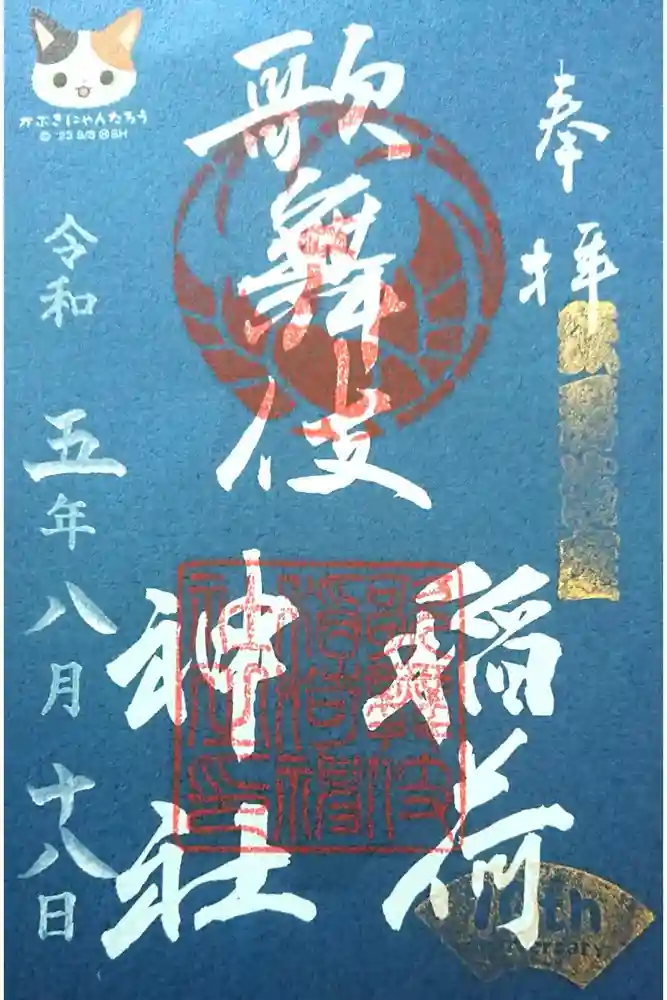 奉拝
歌舞伎
稲荷
神社
令和五年八月十八日
かぶきにゃんたろう
10th
Anniversary